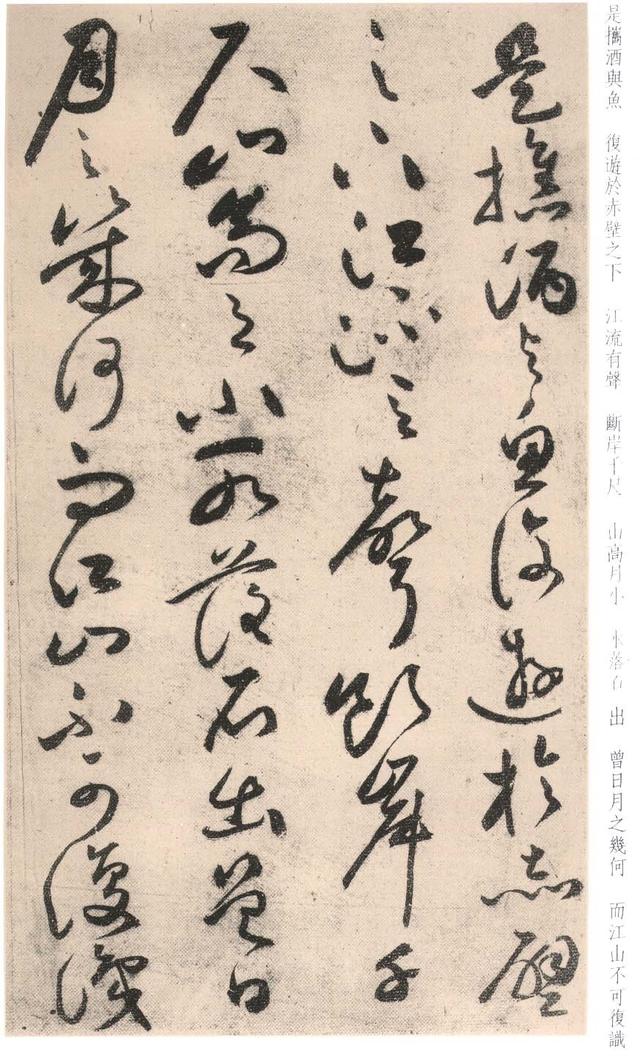 是攜酒與魚 復遊於赤壁之下 江流有聲 斷岸千尺 山高月小 水落石出 曾日月之幾何 而江山不可復識
是攜酒與魚復遊於赤壁
之下江流有聲斷岸千
尺山高月小水落石出曾日
月之幾何而江山不可復識